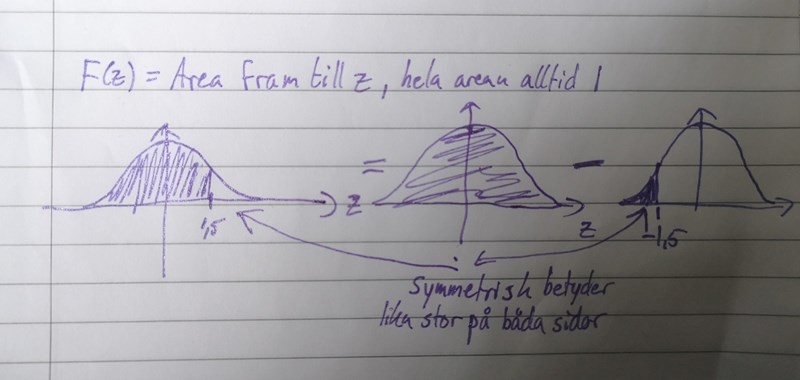 F(z) = Area fram till z, hela arean alltid 1
1,5
z
=
z
-
-1,5
Symmetrisk betyder
lika stor på båda sidor